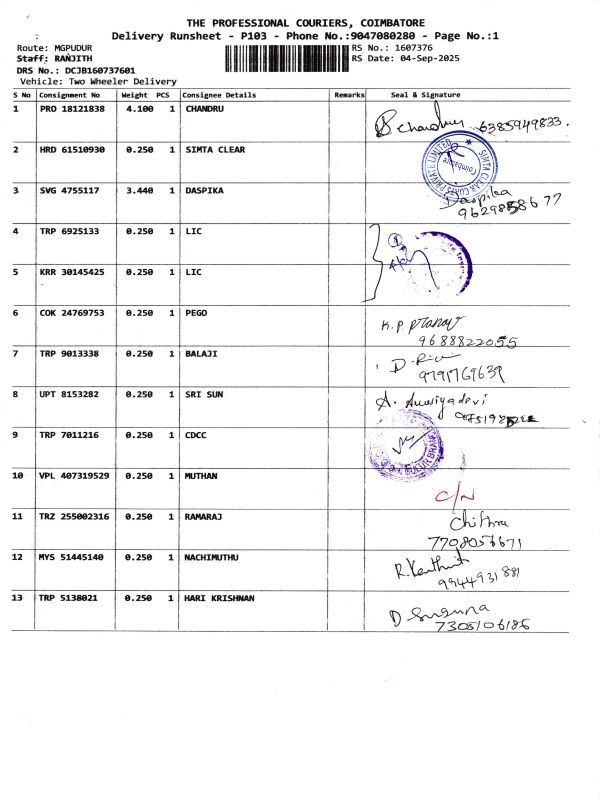 THE PROFESSIONAL COURIERS, COIMBATORE
Delivery Runsheet - P103 - Phone No.:9047080280 - Page No.:1
Route: MGPUDUR RS No.: 1607376
Staff: RANJITH RS Date: 04-Sep-2025
DRS No.: DCJB160737601
Vehicle: Two Wheeler Delivery
S No Consignment No Weight PCS Consignee Details Remarks Seal & Signature
1 PRO 18121838 4.100 1 CHANDRU
chandru 6385949833.
2 HRD 61510930 0.250 1 SIMTA CLEAR
SIMTA CLEAR COATS PRIVATE LIMITED Coimbatore
3 SVG 4755117 3.440 1 DASPIKA
Daspika
4 TRP 6925133 0.250 1 LIC
5 KRR 30145425 0.250 1 LIC
6 COK 24769753 0.250 1 PEGO
K.P. Pranav
9688822055
7 TRP 9013338 0.250 1 BALAJI
9791769639
8 UPT 8153282 0.250 1 SRI SUN
9 TRP 7011216 0.250 1 CDCC
10 VPL 407319529 0.250 1 MUTHAN
C/N
11 TRZ 255002316 0.250 1 RAMARAJ
Chithra
7708056671
12 MYS 51445140 0.250 1 NACHIMUTHU
9944931881
13 TRP 5138021 0.250 1 HARI KRISHNAN
D Suguna
7305106186